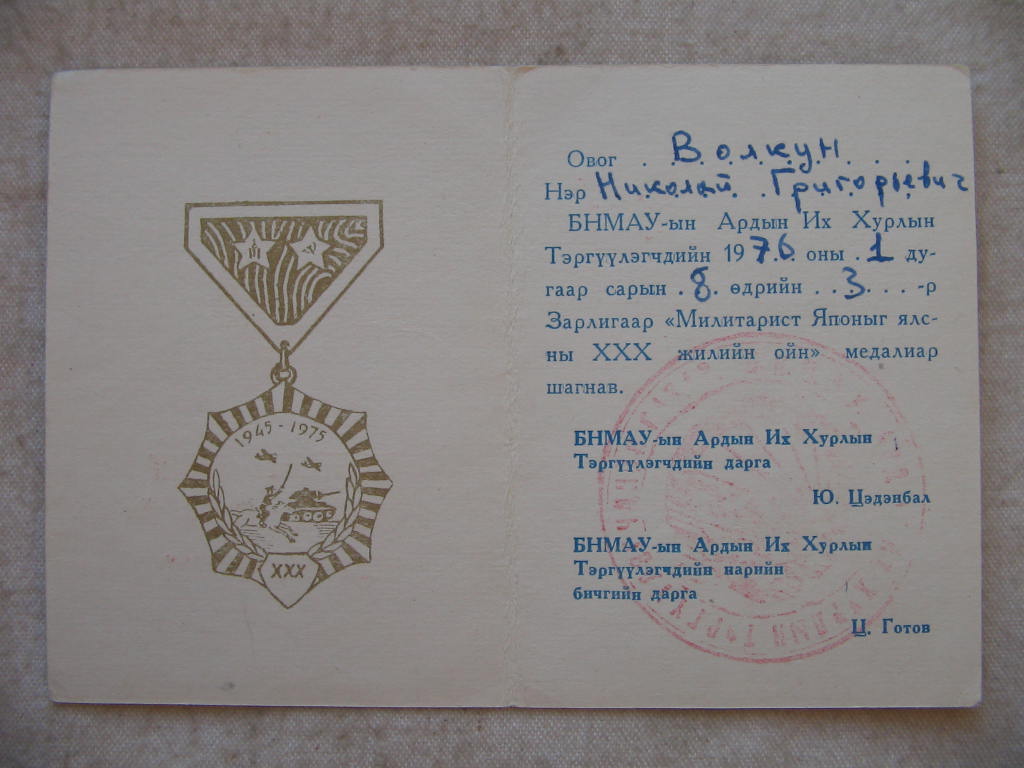 1945-1975
XXX
Овог . В.о.л.к.у.н. . . .
Нэр Николай Григорьевич
БНМАУ-ын Ардын Их Хурлын
Тэргүүлэгчдийн 1976 оны .1 ду-
гаар сарын .8. өдрийн . .3. . . .-р
Зарлигаар «Милитарист Японыг ялс-
ны XXX жилийн ойн» медалиар
шагнав.
БНМАУ-ын Ардын Их Хурлын
Тэргүүлэгчдийн дарга
Ю. Цэдэнбал
БНМАУ-ын Ардын Их Хурлын
Тэргүүлэгчдийн нарийн
бичгийн дарга
Ц. Готов